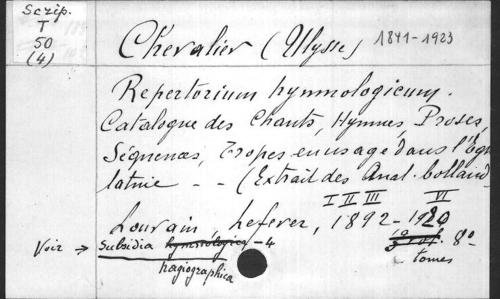 Scrip.
T
50
(4)
Chevalier (Ulysse) 1841-1923
Repertorium hymnologicum.
Catalogue des Chants, Hymnes, Proses,
Séquences, Tropes en usage dans l'Egl
latine - - (Extrait des Anal. bolland
I II III VI
Louvain, Lefever, 1892-1920
8°
tomes
Voir → Subsidia hymnologica -4
hagiographica